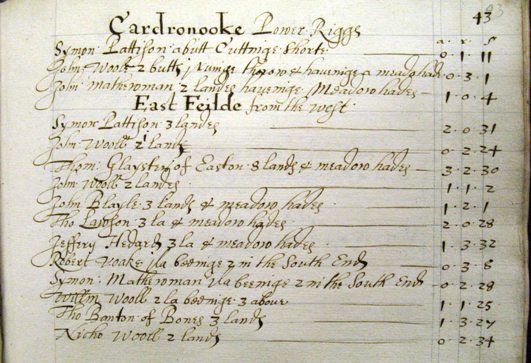 43 93
Cardronooke Power Riggs
a · r · p
Symon Pattison a butt Cuttinge Shorte 0 · 1 · 11
John Wooll 2 butts runige throw & havinige a meadow hade 0 · 3 · 1
John Mathewman 2 landes haveinge Meadow hades 1 · 0 · 4
East Feilde from the west
Symon Pattison 3 landes 2 · 0 · 31
John Wooll 2 landes 0 · 2 · 24
Thom: Glayster of Easton 8 lands & meadow hades 3 · 2 · 30
John Wooll 2 landes 1 · 1 · 2
John Blayle 3 lands & meadow hades 1 · 2 · 1
Tho Lawson 3 la & meadow hades 2 · 0 · 28
Jeffiry Hedard 3 la & meadow hades 1 · 3 · 32
Robert Noake la beeinge 2 in the South End 0 · 3 · 8
Symon Mathewman la beeinge 2 in the South End 0 · 2 · 28
Willm Wooll 2 la beeinge 3 above 1 · 1 · 25
Tho Bonton of Bones 3 lands 1 · 3 · 27
Nicho Wooll 2 lands 0 · 2 · 34